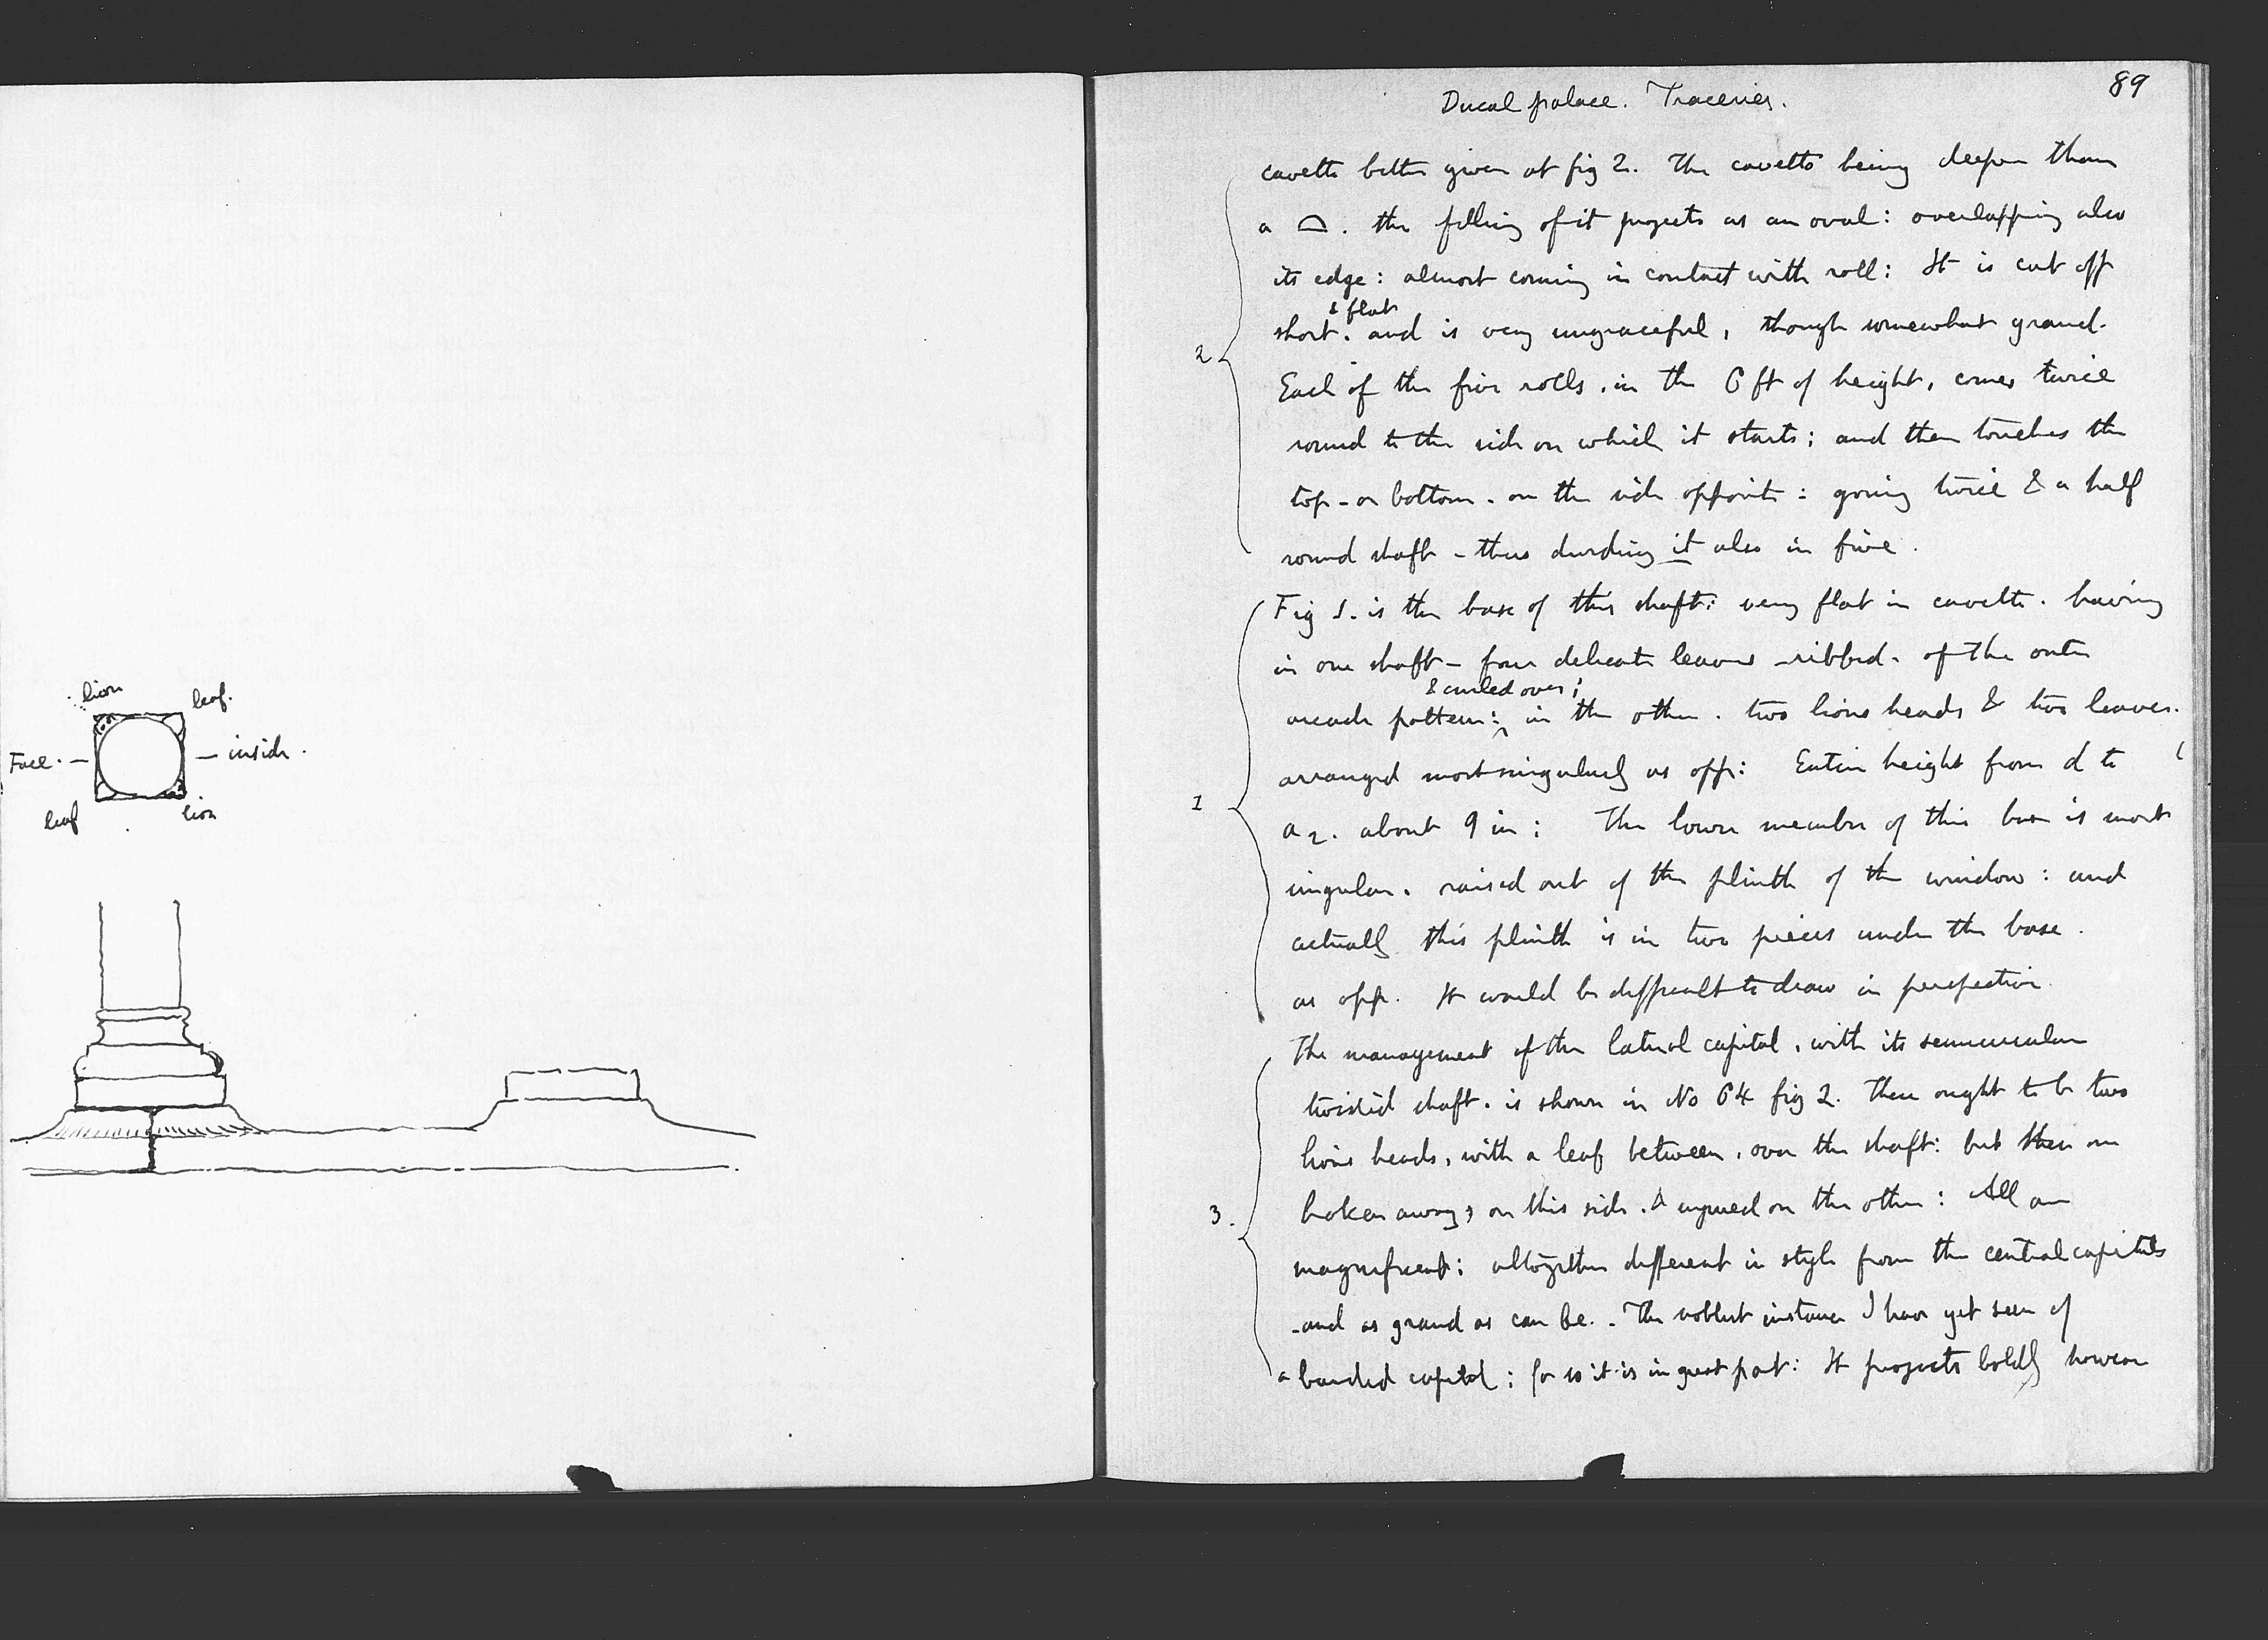 lion
leaf.
Face. — — inside.
leaf lion
89
Ducal palace. Traceries.
cavetto better given at fig 2. The cavetto being deeper than
a ⌓. the filling of it projects as an oval: overlapping also
its edge: almost coming in contact with roll: It is cut off
& flat
short. and is very ungraceful, though somewhat grand.
2
Each of the five rolls. in the 6 ft of height, comes twice
round to the side on which it starts; and then touches the
top - or bottom. on the side opposite: going twice & a half
round shaft - thus dividing it also in five.
Fig 1. is the base of this shaft: very flat in cavetto. having
in one shaft - four delicate leaves - ribbed. of the outer
& curled over;
arcade pattern: in the other. two lions heads & two leaves.
arranged most singularly as opp: Entire height from d to
1
a 2. about 9 in: The lower member of this base is most
singular. raised out of the plinth of the window: and
actually this plinth is in two pieces under the base.
as opp. It would be difficult to draw in perspective.
The management of the lateral capital, with its semicircular
twisted shaft. is shown in No 64 fig 2. There ought to be two
lions heads, with a leaf between, over the shaft: but these are
3.
broken away, on this side. & injured on the other: All are
magnificent; altogether different in style from the central capitals
- and as grand as can be. - The noblest instance I have yet seen of
a banded capital: for so it is in great part: It projects boldly however